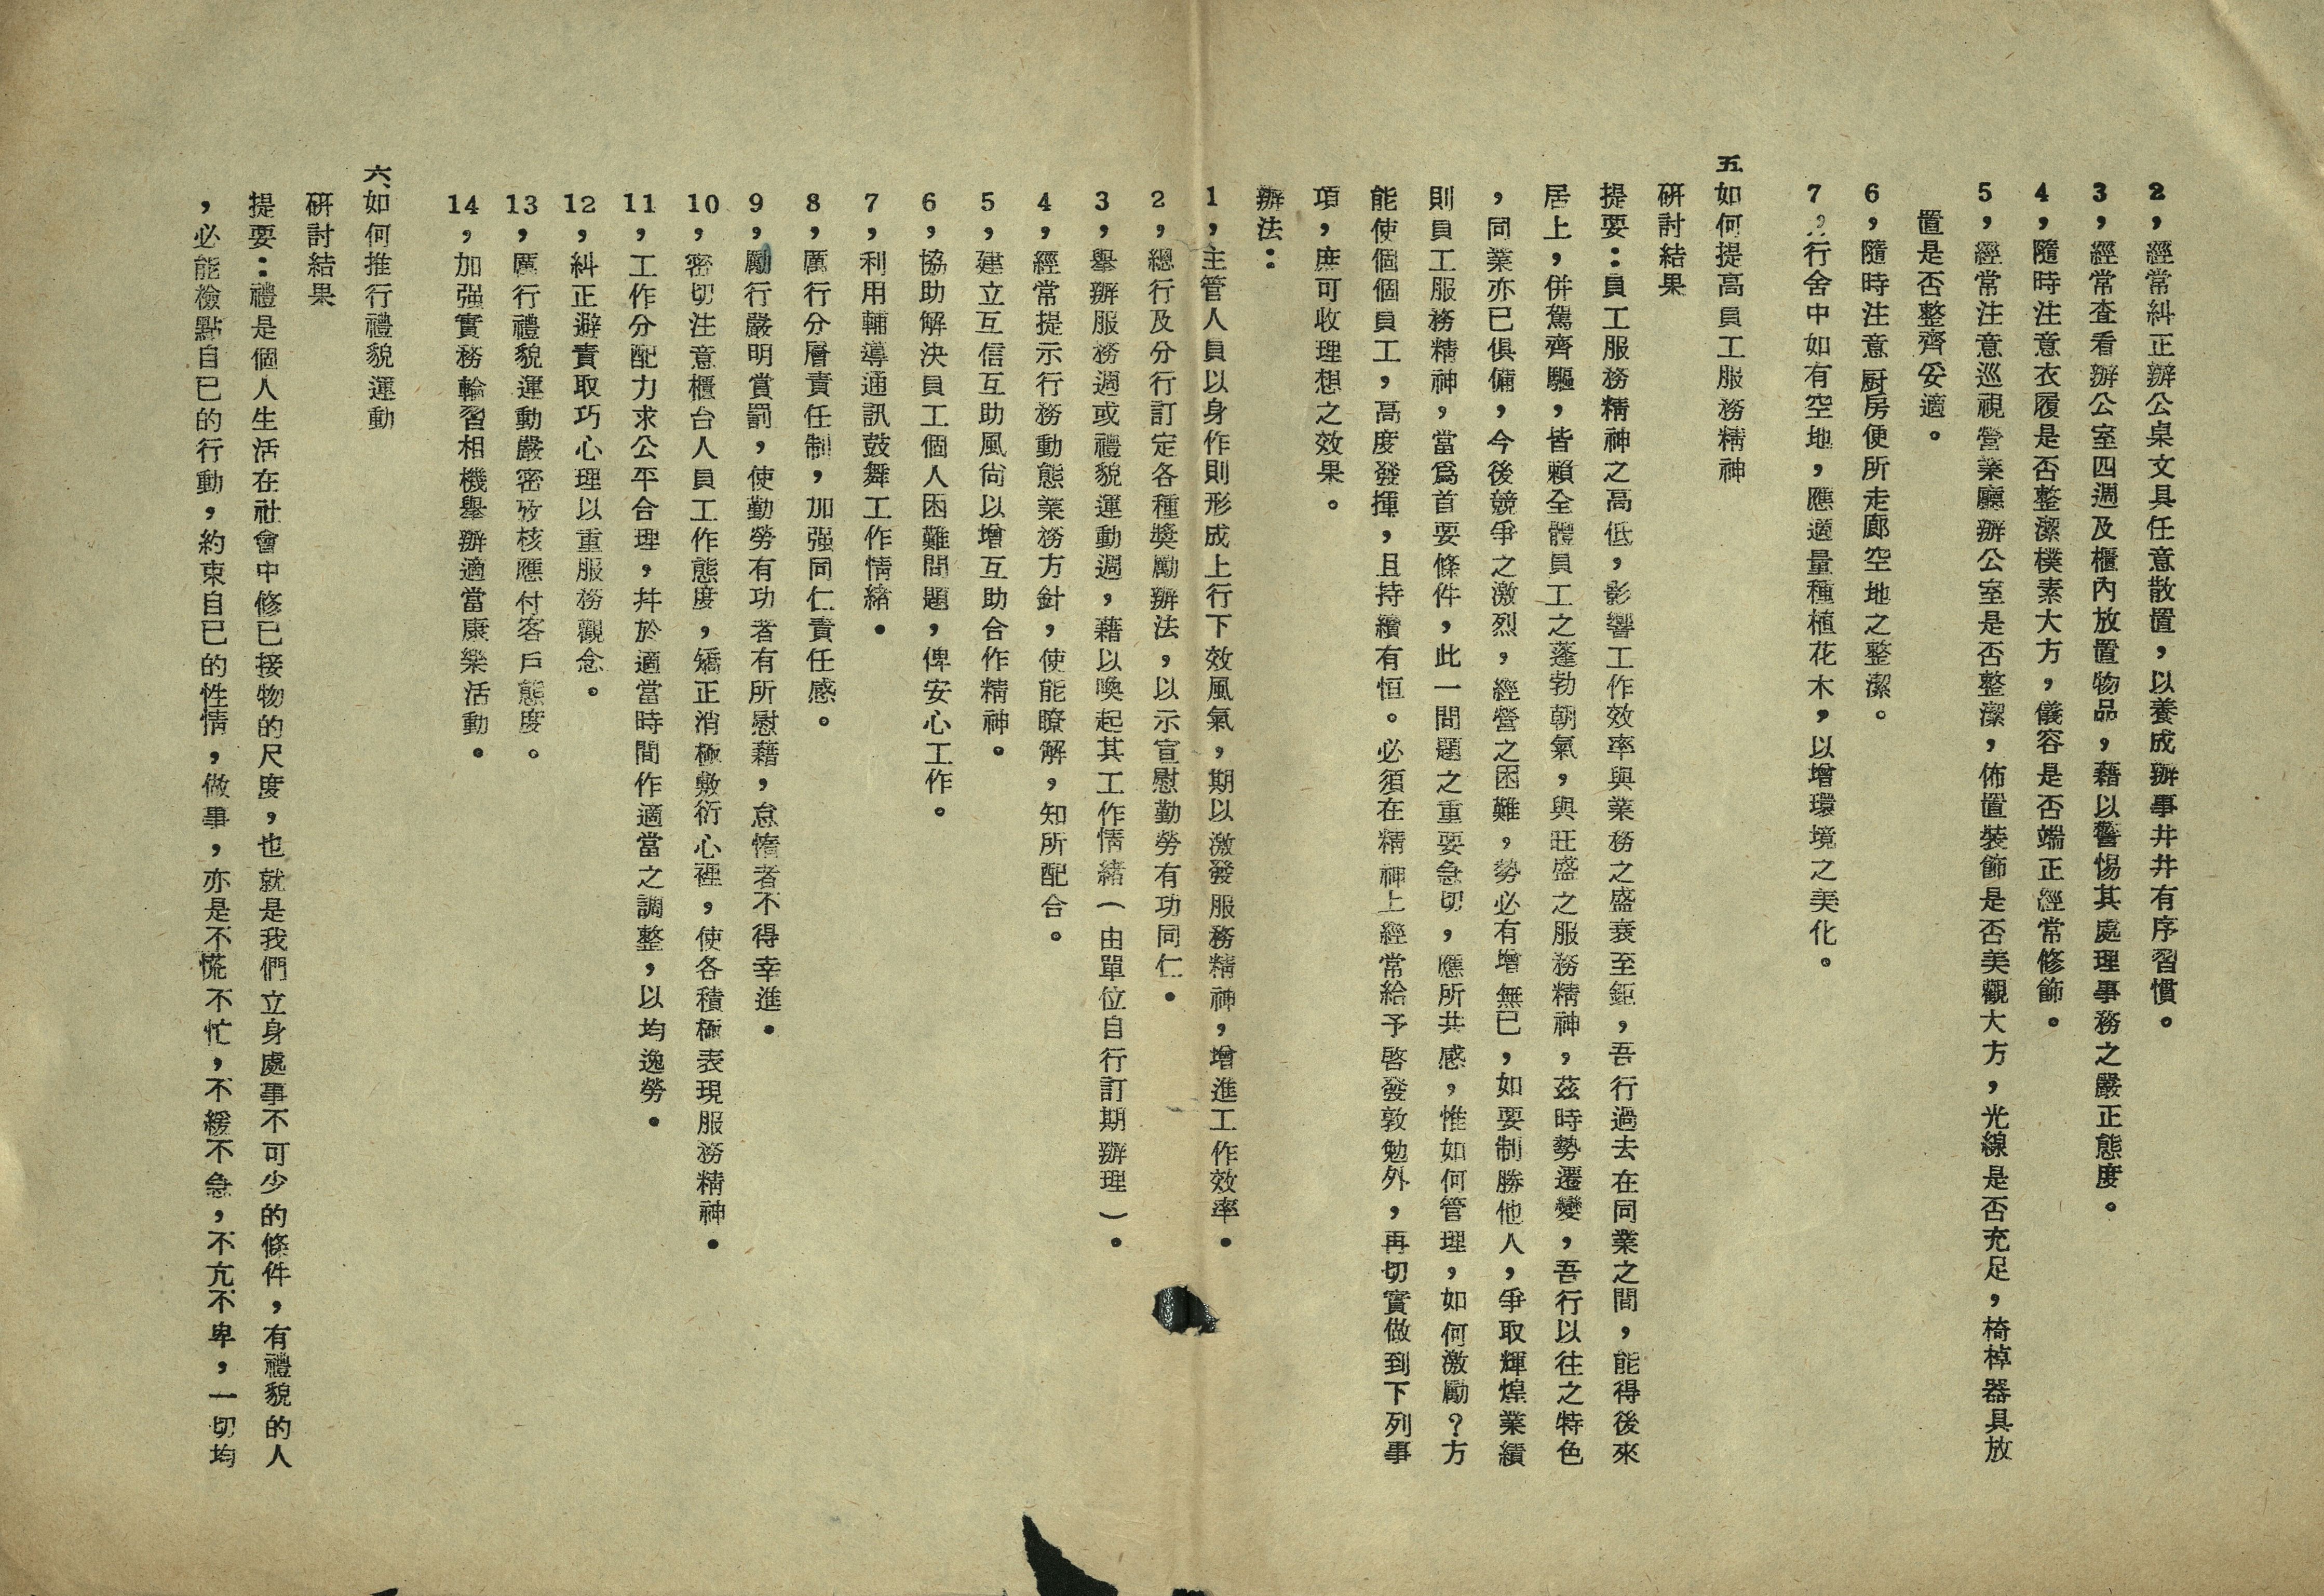 2，經常糾正辦公桌文具任意散置，以養成辦事井井有序習慣。
3，經常查看辦公室四週及櫃內放置物品，藉以警惕其處理事務之嚴正態度。
4，隨時注意衣履是否整潔樸素大方，儀容是否端正經常修飾。
5，經常注意巡視營業廳辦公室是否整潔，佈置裝飾是否美觀大方，光線是否充足，椅棹器具放
置是否整齊安適。
6，隨時注意厨房便所走廊空地之整潔。
7，行舍中如有空地，應適量種植花木，以增環境之美化。
五、如何提高員工服務精神
研討結果
提要：員工服務精神之高低，影響工作效率與業務之盛衰至鉅，吾行過去在同業之間，能得後來
居上，併駕齊驅，皆賴全體員工之蓬勃朝氣，與旺盛之服務精神，茲時勢遷變，吾行以往之特色
，同業亦已俱備，今後競爭之激烈，經營之困難，勢必有增無已，如要制勝他人，爭取輝煌業績
則員工服務精神，當爲首要條件，此一問題之重要急切，應所共感，惟如何管理，如何激勵？方
能使個個員工，高度發揮，且持續有恒。必須在精神上經常給予啓發敦勉外，再切實做到下列事
項，庶可收理想之效果。
辦法：
1，主管人員以身作則形成上行下效風氣，期以激發服務精神，增進工作效率。
2，總行及分行訂定各種獎勵辦法，以示宣慰勤勞有功同仁。
3，舉辦服務週或禮貌運動週，藉以喚起其工作情緒（由單位自行訂期辦理）。
4，經常提示行務動態業務方針，使能瞭解，知所配合。
5，建立互信互助風尙以增互助合作精神。
6，協助解決員工個人困難問題，俾安心工作。
7，利用輔導通訊鼓舞工作情緒。
8，厲行分層責任制，加强同仁責任感。
9，勵行嚴明賞罰，使勤勞有功者有所慰藉，怠惰者不得幸進。
10，密切注意櫃台人員工作態度，矯正消極敷衍心裡，使各積極表現服務精神。
11，工作分配力求公平合理，幷於適當時間作適當之調整，以均逸勞。
12，糾正避責取巧心理以重服務觀念。
13，厲行禮貌運動嚴密攷核應付客戶態度。
14，加强實務輪習相機舉辦適當康樂活動。
六、如何推行禮貌運動
研討結果
提要：禮是個人生活在社會中修已接物的尺度，也就是我們立身處事不可少的條件，有禮貌的人
，必能檢點自已的行動，約束自已的性情，做事，亦是不慌不忙，不緩不急，不亢不卑，一切均